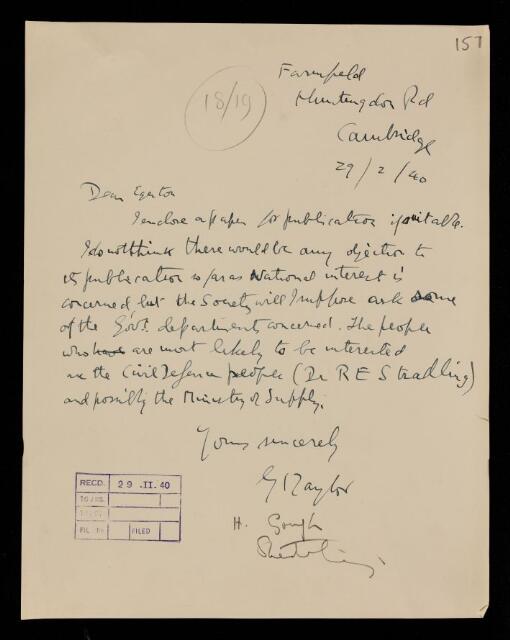 157
18/19
Farmfield
Huntingdon Rd
Cambridge
29/2/40
Dear Egerton
I enclose a paper for publication if suitable.
I do not think there would be any objection to
its publication so far as National interest is
concerned, but the Society will I suppose ask some
of the Govt. departments concerned. The people
who have are most likely to be interested
are the Civil Defence people (Dr R E Stradling)
and possibly the Ministry of Supply.
Yours sincerely
G I Taylor
H. Gough
RECD. 29 .II. 40
FILED